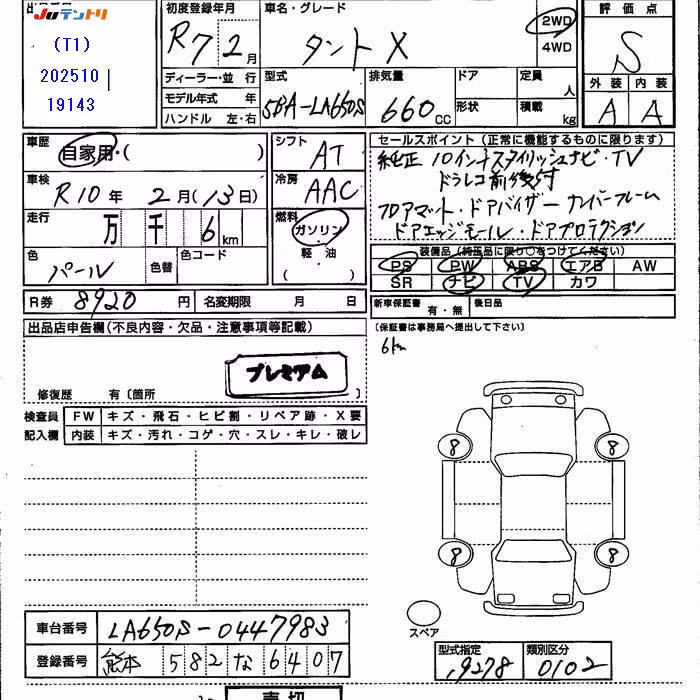 JUテントリ
(T1)
202510
19143
初度登録年月
R7 2月
車名・グレード
タント X
2WD
4WD
評価点
S
外装 内装
A A
ディーラー・並行
モデル年式 年
ハンドル 左・右
型式
5BA-LA650S
排気量
660 CC
ドア
形状
定員 人
積載 kg
車歴
自家用・( )
シフト
AT
車検
R10年 2月(13日)
冷房
AAC
走行
万 千 6 km
燃料
ガソリン
軽・油
( )
色
パール
色替
色コード
R券 8920 円
名変期限 月 日
セールスポイント(正常に機能するものに限ります)
純正 10インチスタイリッシュナビ・TV
ドラレコ前後付
フロアマット・ドアバイザー ナンバーフレーム
ドアエッジモール・ドアプロテクション
装備品(純正品に限り○をつけてください)
PS PW ABS エアB AW
SR ナビ TV カワ
新車保証書 有・無
後日品
(保証書は事務局へ提出して下さい)
6km
出品店申告欄(不良内容・欠品・注意事項等記載)
プレミアム
修復歴 有〔箇所 〕
検査員 FW キズ・飛石・ヒビ割・リペア跡・X要
記入欄 内装 キズ・汚れ・コゲ・穴・スレ・キレ・破レ
8 8
8 8
スペア
車台番号 LA650S-0447983
登録番号 熊本 582 な 6407
型式指定
19278
類別区分
0102